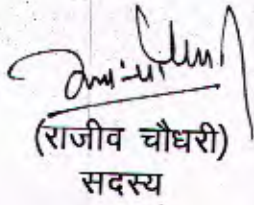 (राजीव चौधरी)
सदस्य